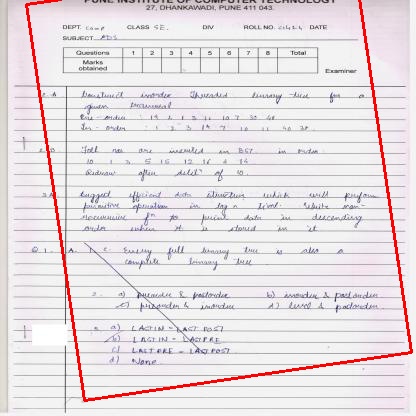 PUNE INSTITUTE OF COMPUTER TECHNOLOGY
27, DHANKAWADI, PUNE 411 043.
DEPT. Comp CLASS SE. DIV ROLL NO. DATE
SUBJECT ADS
Questions 1 2 3 4 5 6 7 8 Total
Marks obtained
Examiner
Construct inorder Threaded binary tree for a
given
Pre-order :
In-order : 1 2 3
Foll. nos are inserted in BST in order
10 1 3 5 15 12 16 4 14
Redraw after delet of 10.
Suggest efficient data structure which will perform
primitive operation in log n level. Write non-
recursive fn to print data in descending
order when it is stored in it
Q.1. A. c. Every full binary tree is also a
complete binary tree
2. a) preorder & postorder b) inorder & postorder
c) preorder & inorder d) level & postorder
a) LASTIN = LASTPOST
b) LASTIN = LASTPRE
c) LASTPRE = LASTPOST
d) None